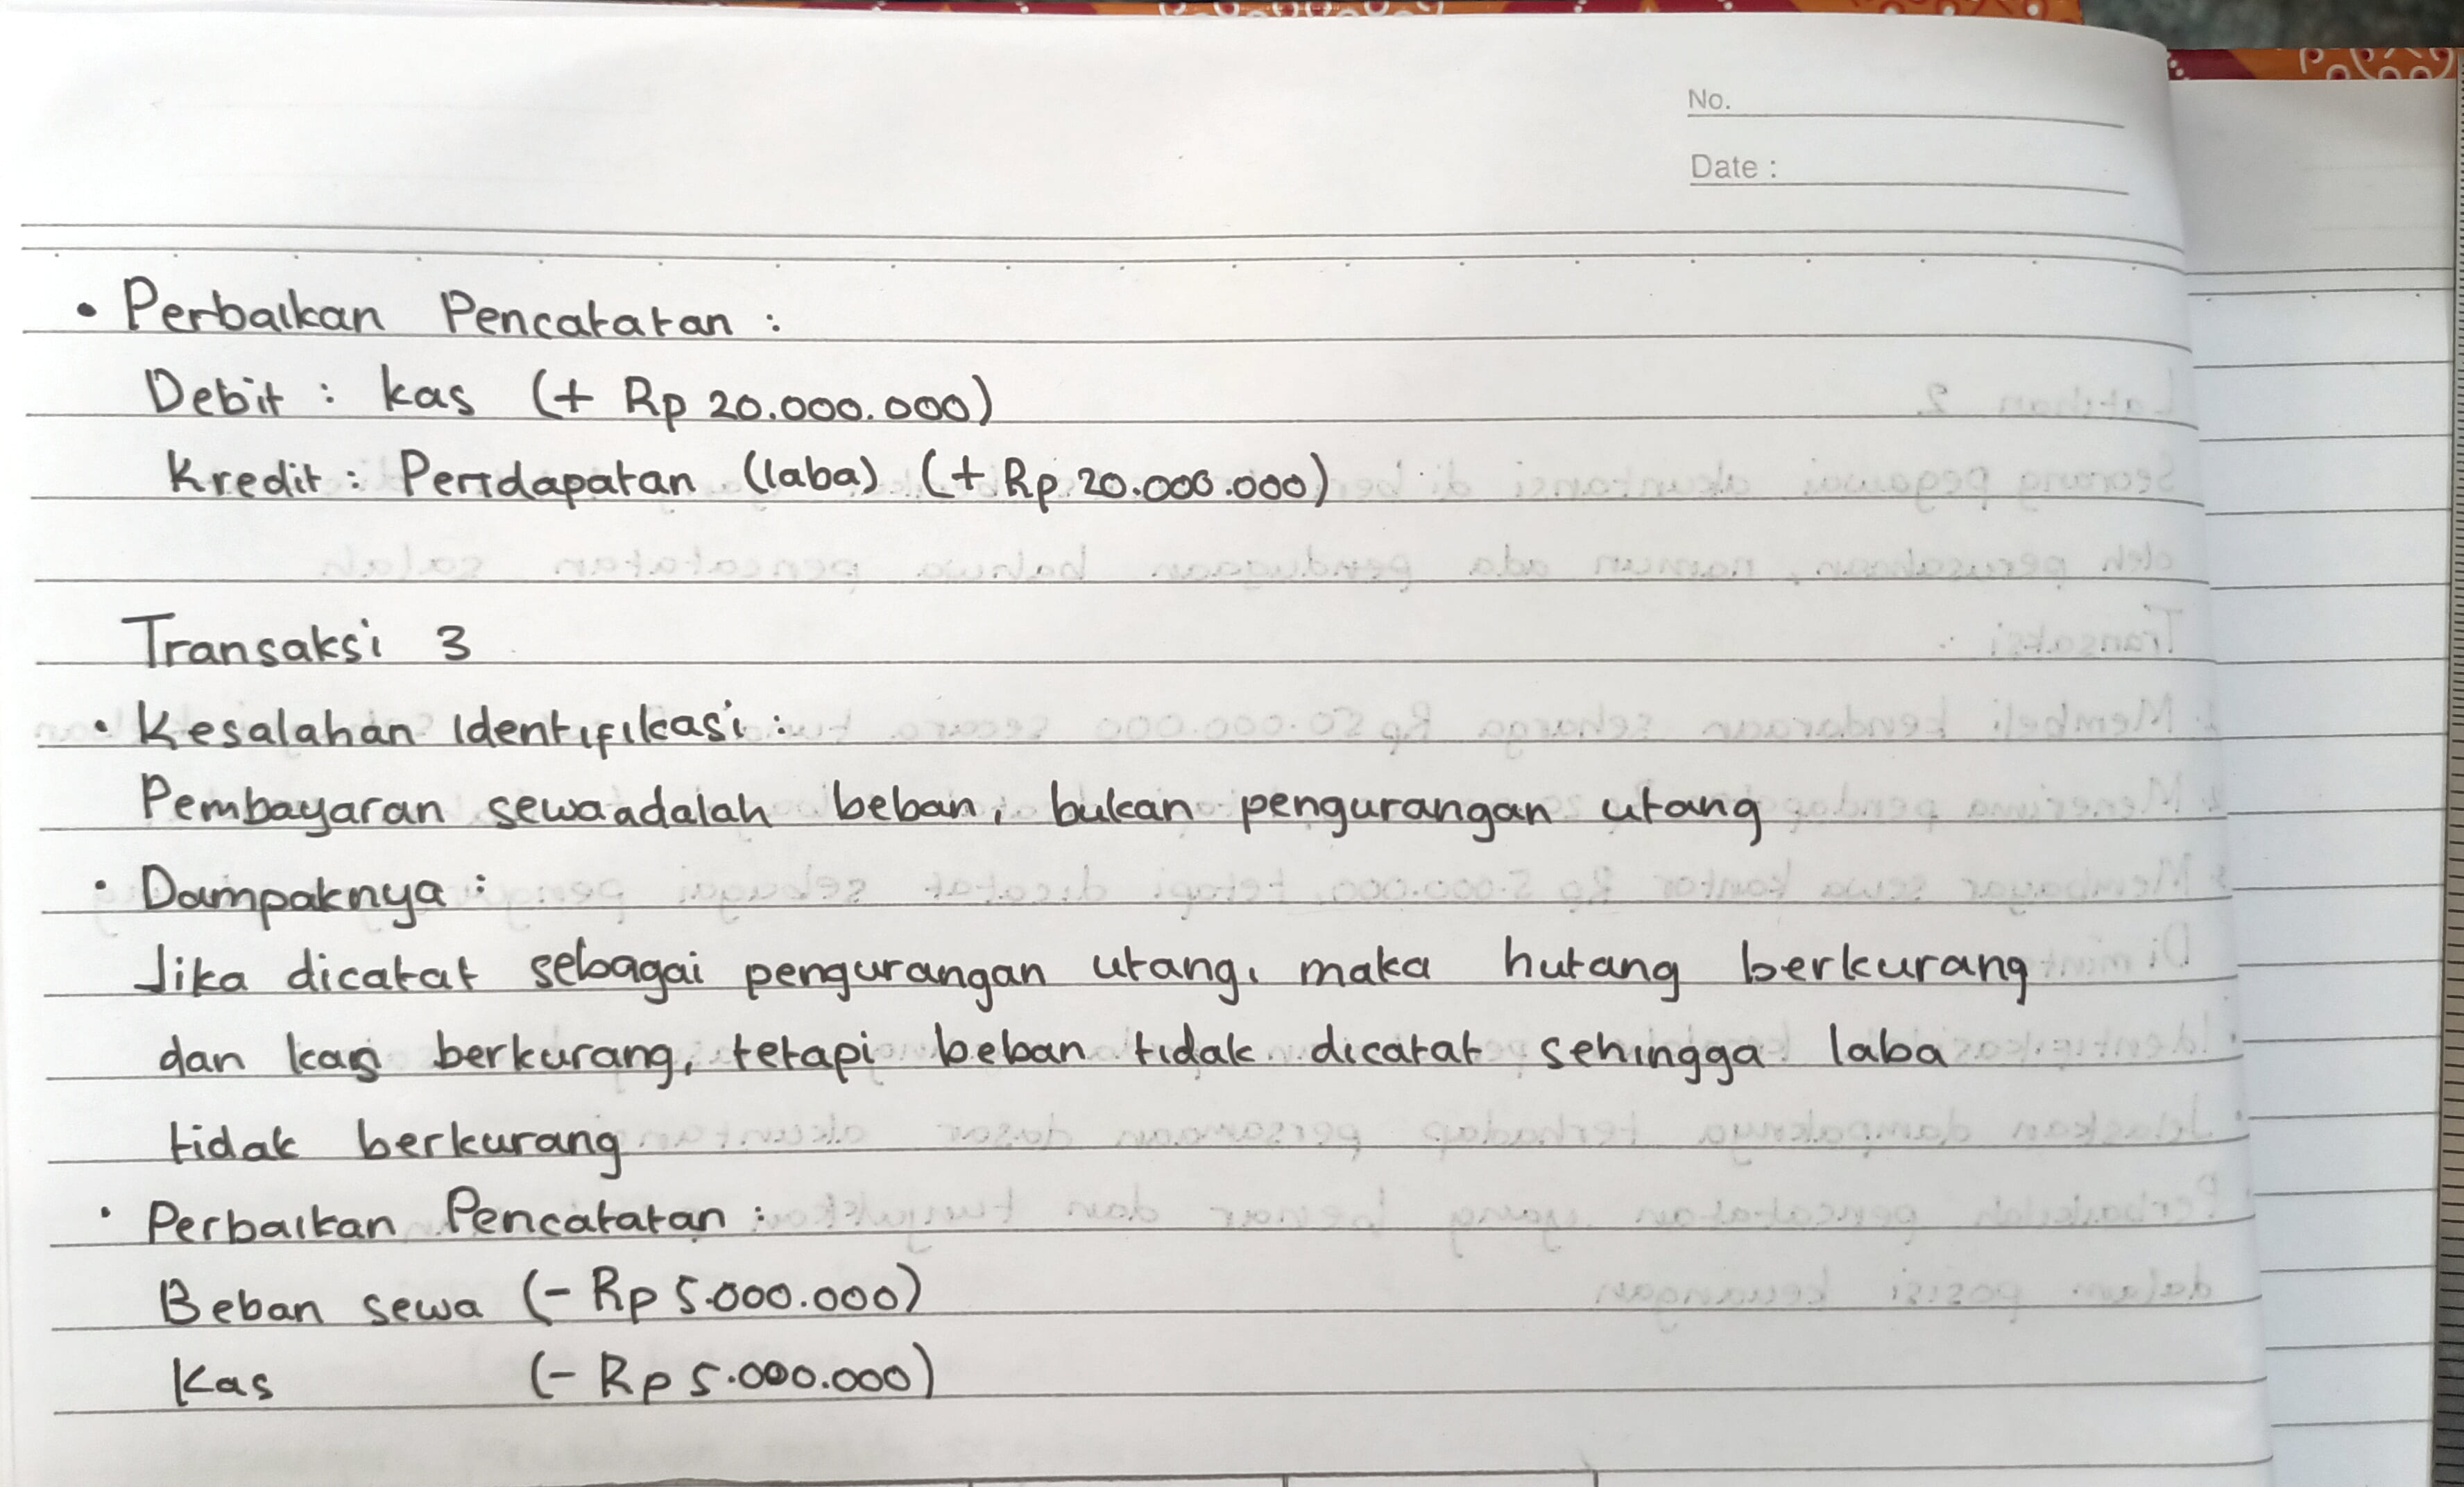 No.
Date :
• Perbaikan Pencatatan :
Debit : kas (+ Rp 20.000.000)
Kredit : Pendapatan (laba) (+ Rp 20.000.000)
Transaksi 3
• Kesalahan Identifikasi :
Pembayaran sewa adalah beban, bukan pengurangan utang
• Dampaknya :
Jika dicatat sebagai pengurangan utang, maka hutang berkurang
dan kas berkurang, tetapi beban tidak dicatat sehingga laba
tidak berkurang
• Perbaikan Pencatatan :
Beban sewa (- Rp 5.000.000)
Kas (- Rp 5.000.000)